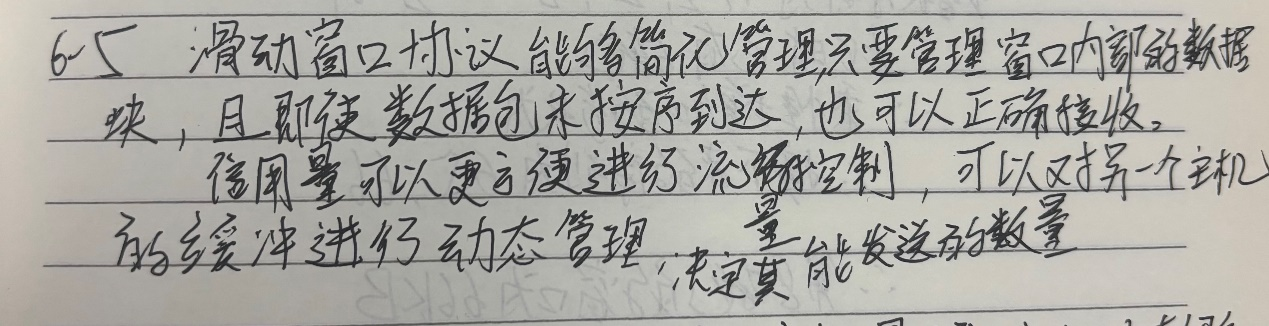 6-5 滑动窗口协议能够简化管理,只要管理窗口内部的数据
块，且即使数据包未按序到达，也可以正确接收。
信用量可以更方便进行流量控制，可以对另一个主机
的缓冲进行动态管理,决定其能发送的数量